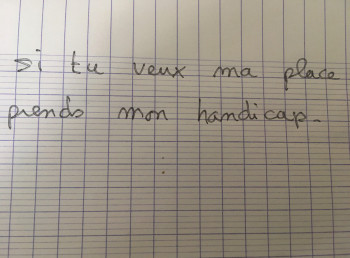 si tu veux ma place
prends mon handicap.